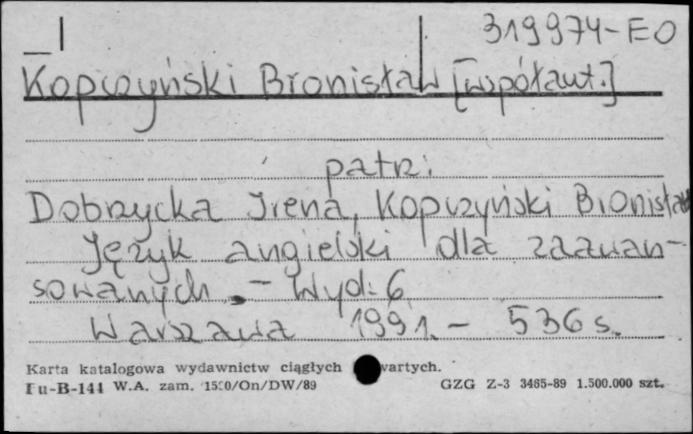 319974-EO
Kopczyński Bronisław [współaut.]
patrz:
Dobrzycka Irena, Kopczyński Bronisław
Język angielski dla zaawan-
sowanych. - Wyd. 6
Warszawa 1991. - 536 s.
Karta katalogowa wydawnictw ciągłych wartych.
Pu-B-141 W.A. zam. /On/DW/89 GZG Z-3 3465-89 1.500.000 szt.